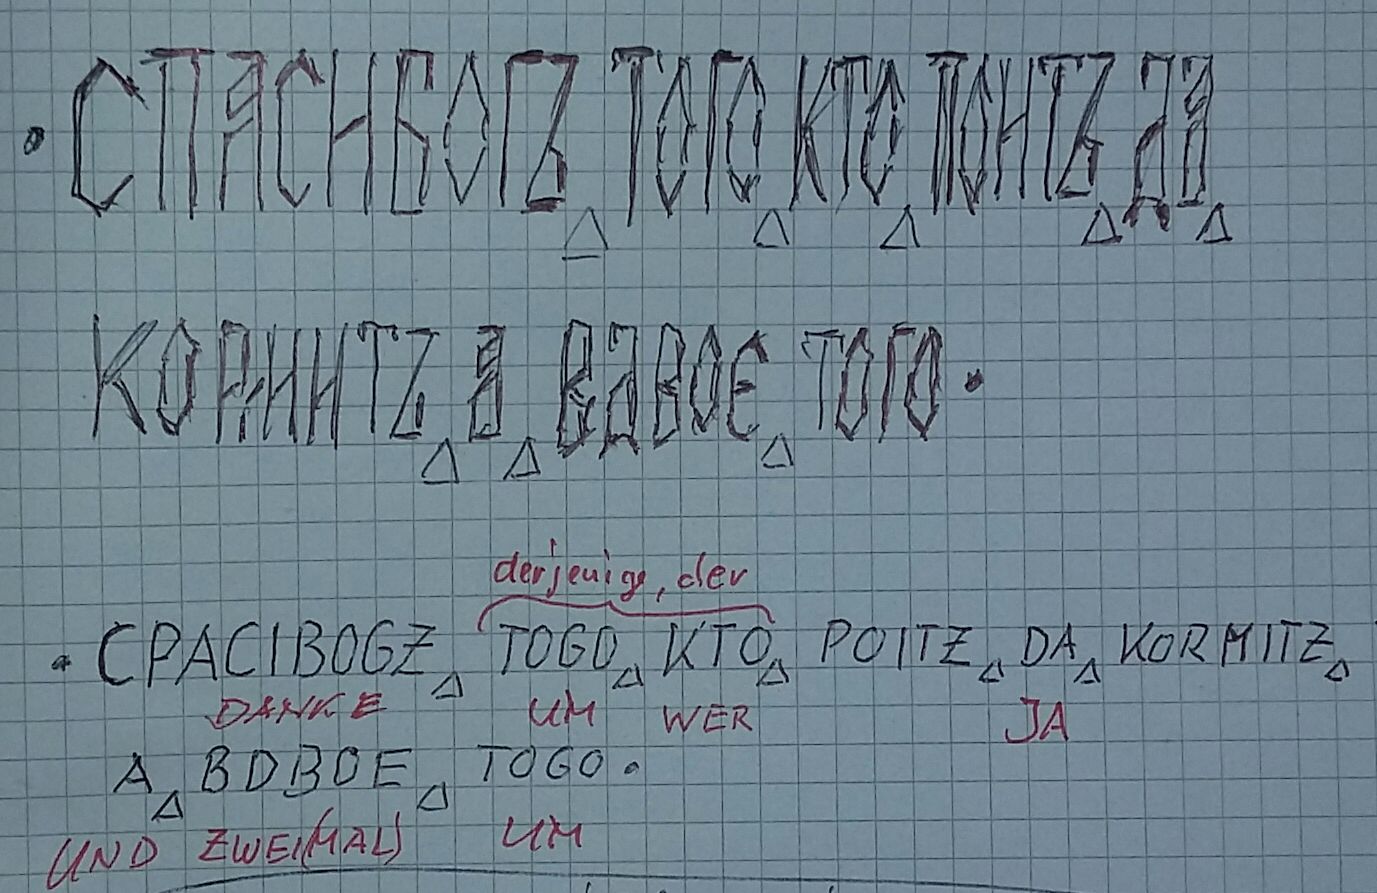 • СПАСИБОГЪ ТОГО КТО ПОИТЪ ДА
КОРМИТЪ А ВДВОЕ ТОГО •
derjenige, der
• CPACIBOGZ TOGO KTO POITZ DA KORMITZ
DANKE UM WER JA
A BDBOE TOGO •
UND ZWEI(MAL) UM